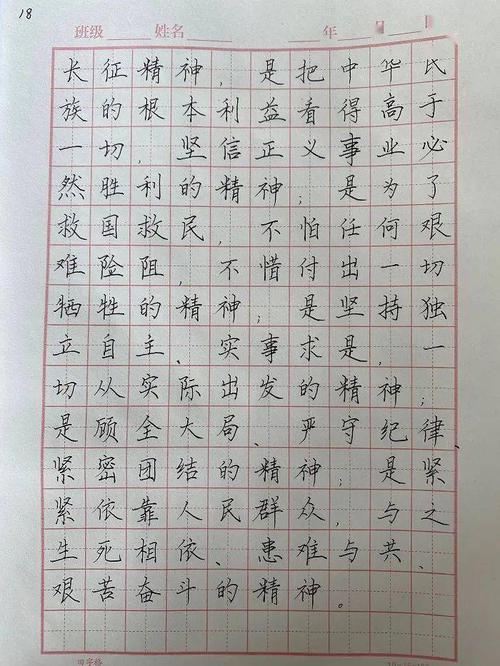 18
班级 姓名 年 月
长征精神,是把中华民
族的根本利益看得高于
一切,坚信正义事业必
然胜利的精神;是为了
救国救民,不怕任何艰
难险阻,不惜付出一切
牺牲的精神;是坚持独
立自主、实事求是,一
切从实际出发的精神;
是顾全大局、严守纪律、
紧密团结的精神;是紧
紧依靠人民群众,与之
生死相依、患难与共、
艰苦奋斗的精神。
田字格